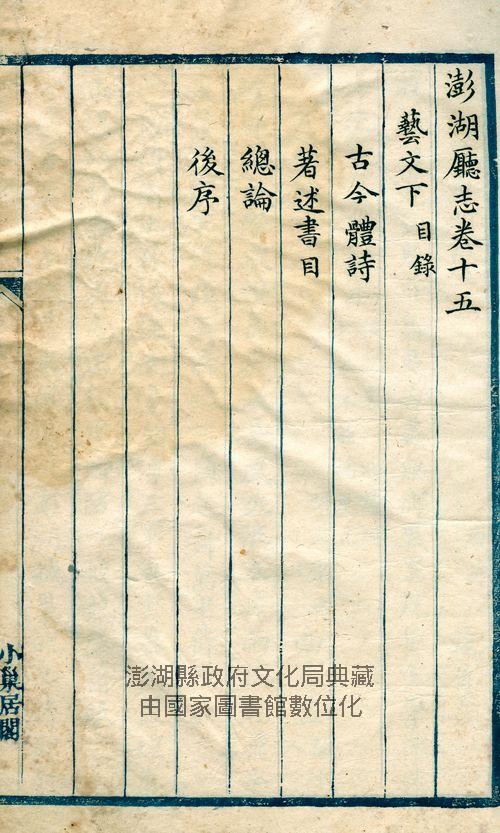 澎湖廳志卷十五
藝文下 目錄
古今體詩
著述書目
總論
後序
小巢居閣
澎湖縣政府文化局典藏
由國家圖書館數位化